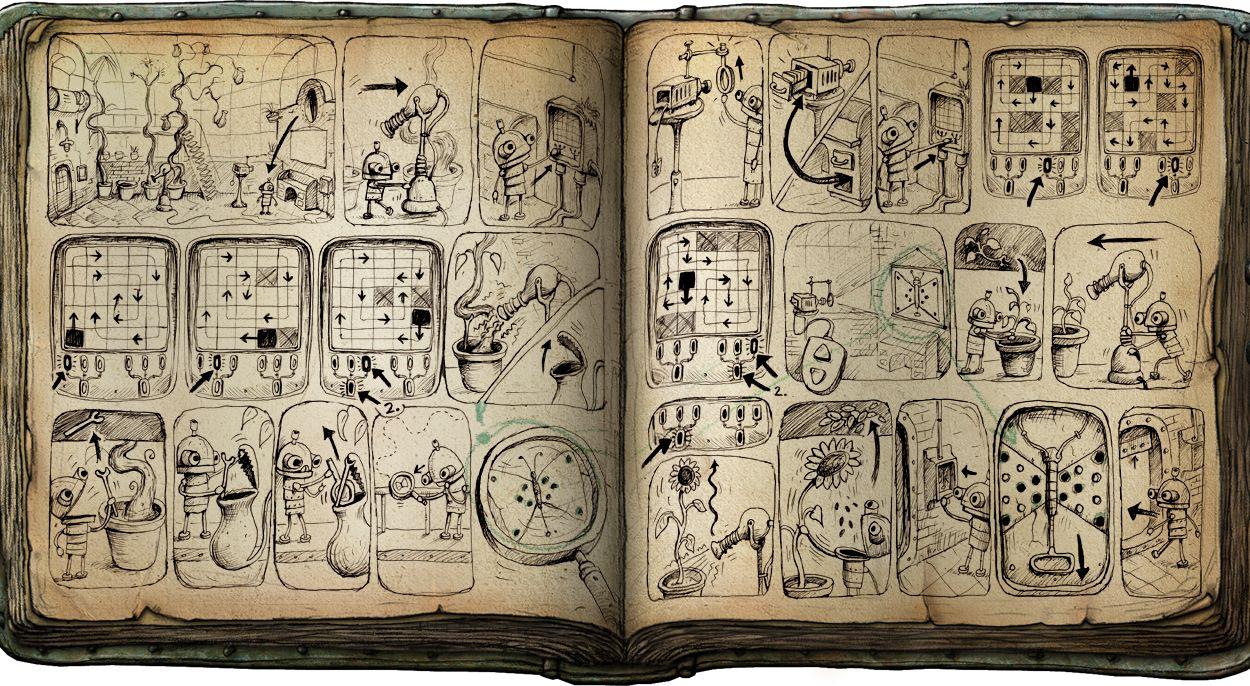 2.
2.